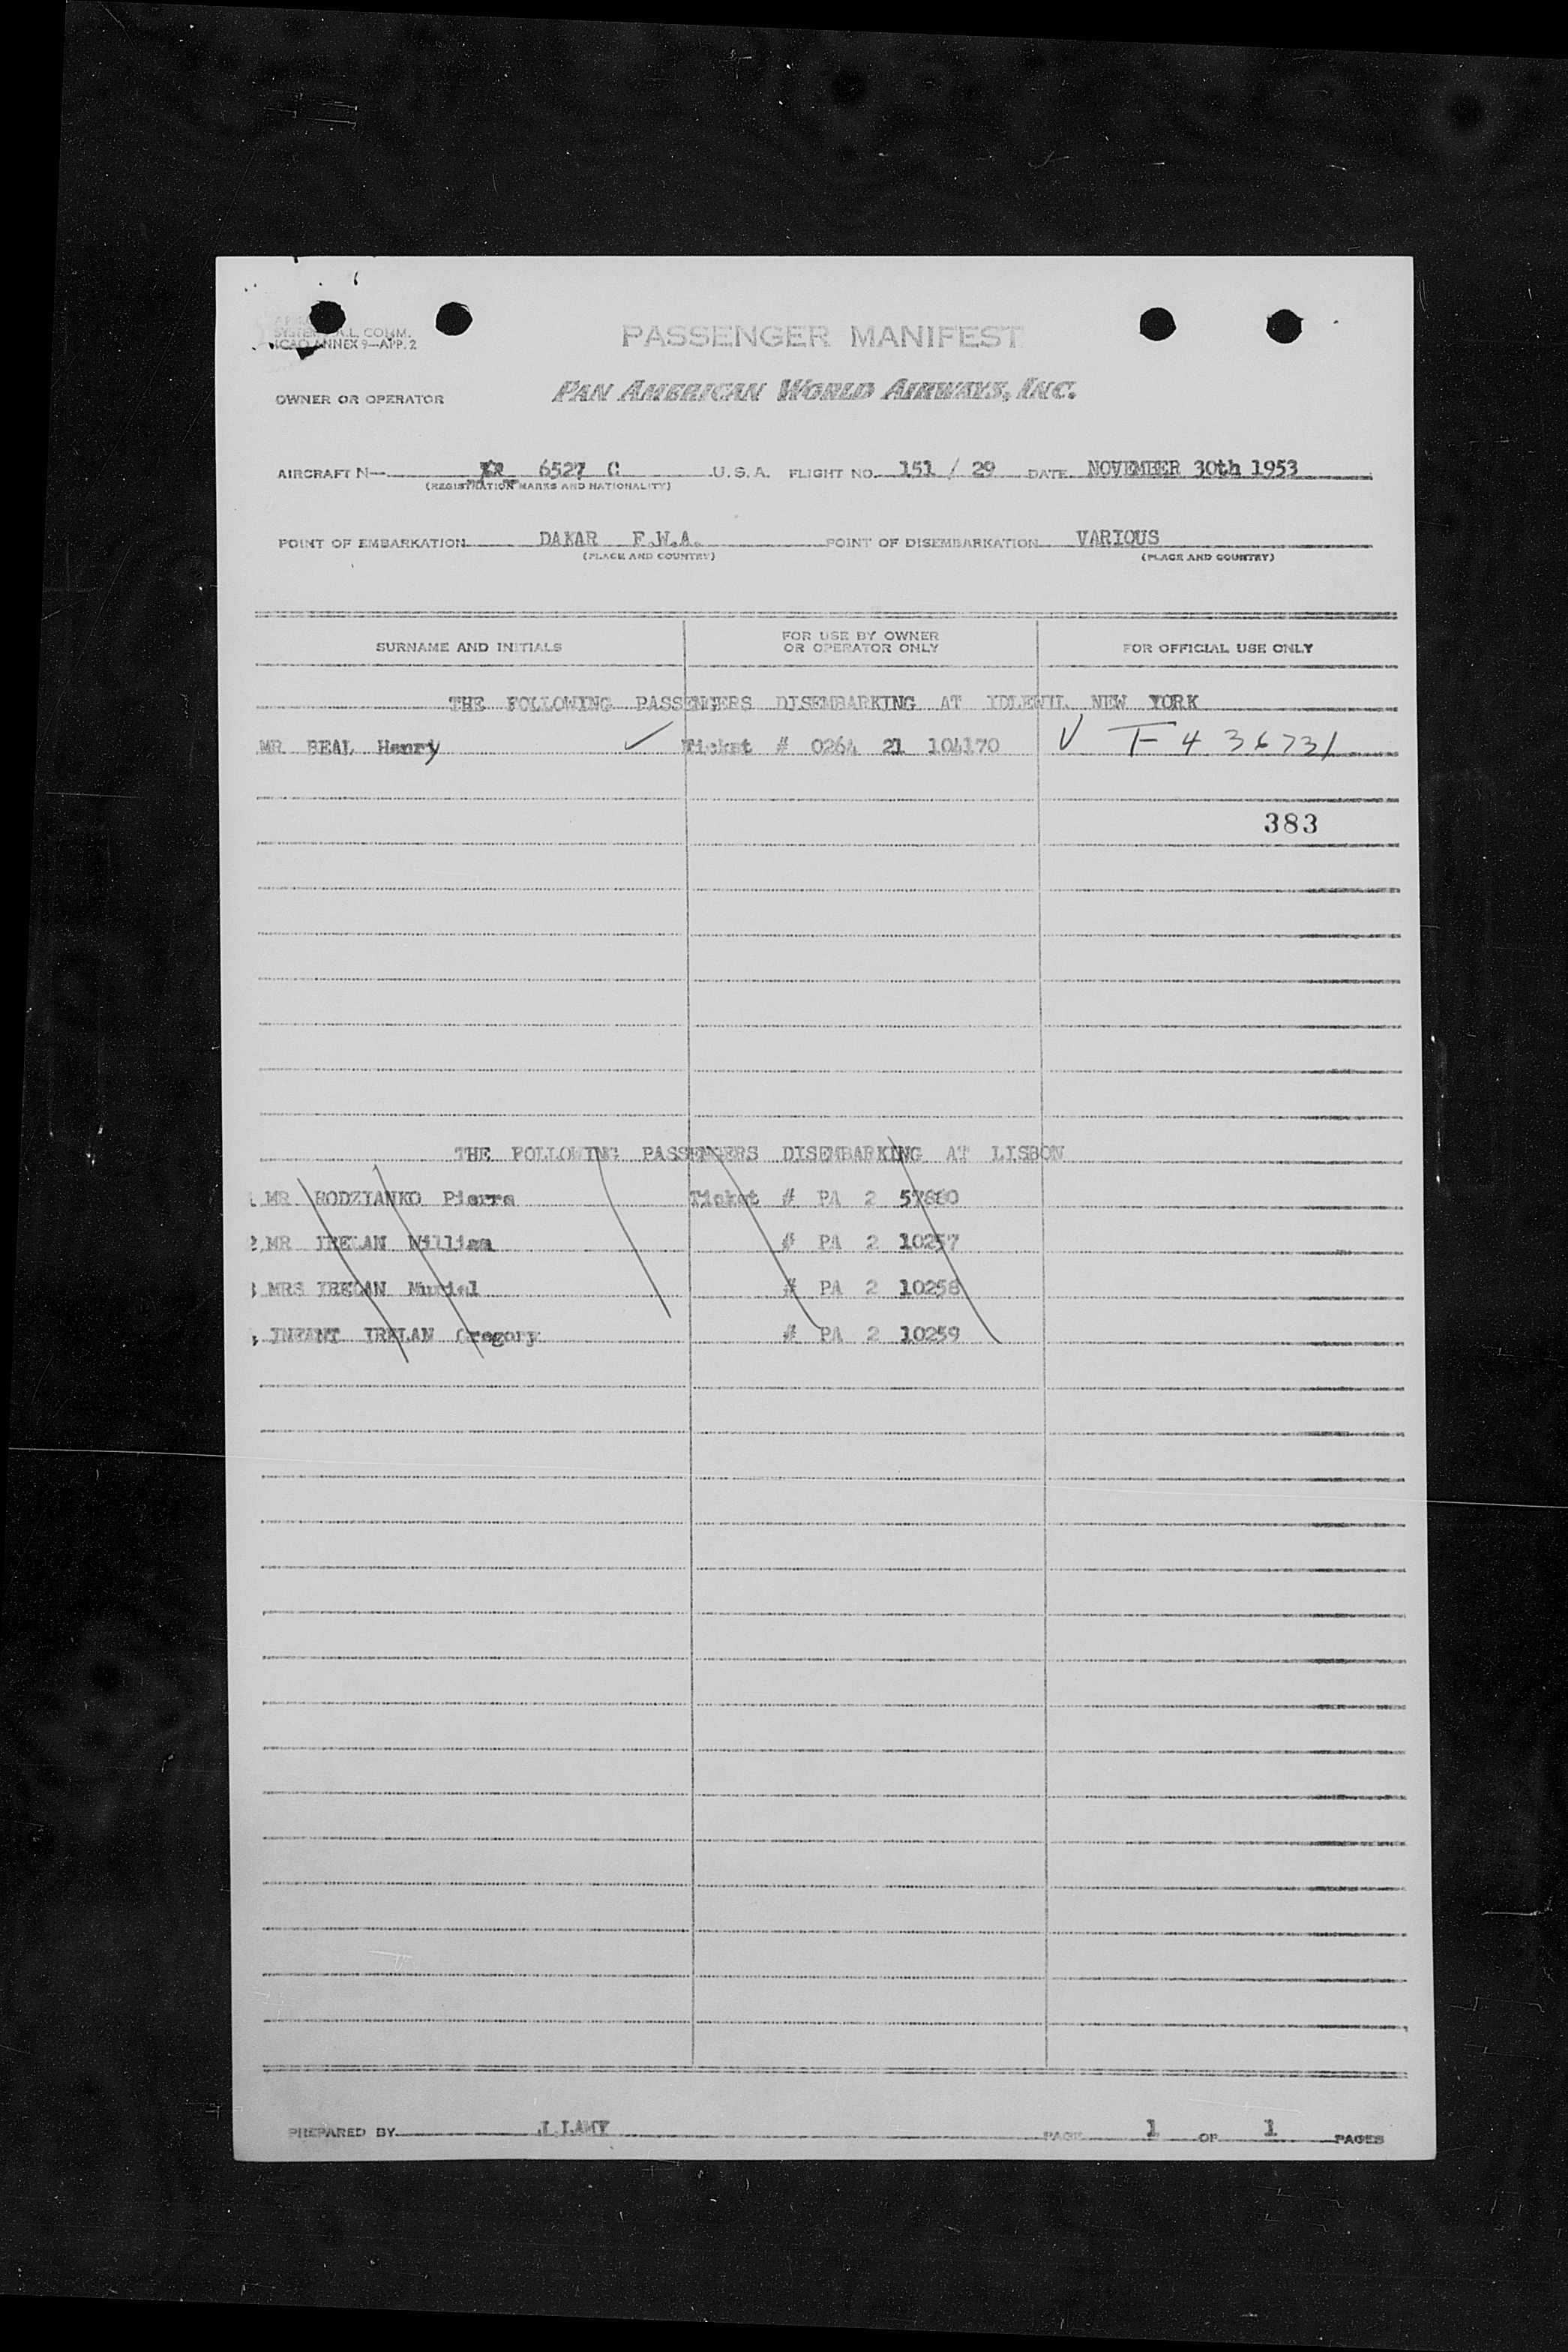 SYSTEM ALL COMM.
ICAO ANNEX 9—APP. 2
PASSENGER MANIFEST
OWNER OR OPERATOR PAN AMERICAN WORLD AIRWAYS, INC.
AIRCRAFT N— 6527 C U.S.A. FLIGHT NO. 151 / 29 DATE NOVEMBER 30th 1953
(REGISTRATION MARKS AND NATIONALITY)
POINT OF EMBARKATION DAKAR F.W.A. POINT OF DISEMBARKATION VARIOUS
(PLACE AND COUNTRY) (PLACE AND COUNTRY)
SURNAME AND INITIALS FOR USE BY OWNER OR OPERATOR ONLY FOR OFFICIAL USE ONLY
THE FOLLOWING PASSENGERS DISEMBARKING AT IDLEWIL NEW YORK
MR BEAL Henry ✓ Ticket # 026A 21 104170 ✓ T-436731
383
THE FOLLOWING PASSENGERS DISEMBARKING AT LISBON
MR RODZIANKO Pierre Ticket # PA 2 57880
2 MR IRELAN William # PA 2 10257
MRS IRELAN Muriel # PA 2 10258
INFANT IRELAN Gregory # PA 2 10259
PREPARED BY J LAMY PAGE 1 OF 1 PAGES